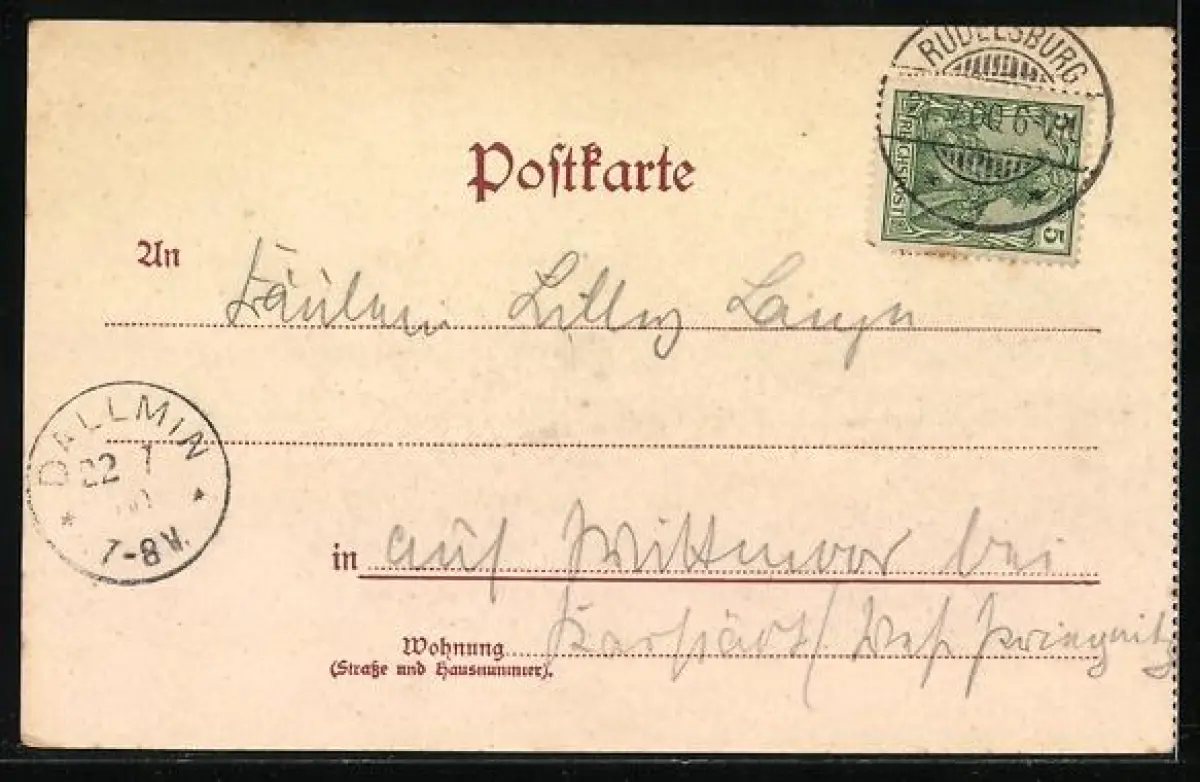 RUDELSBURG
00 6-7N
REICHSPOST
5
5
Postkarte
An Fräulein Lilly Lange
DALLMIN
22 7
7-8V.
in auf Wittmoor bei
Wohnung Karstädt / West Priegnitz
(Straße und Hausnummer).